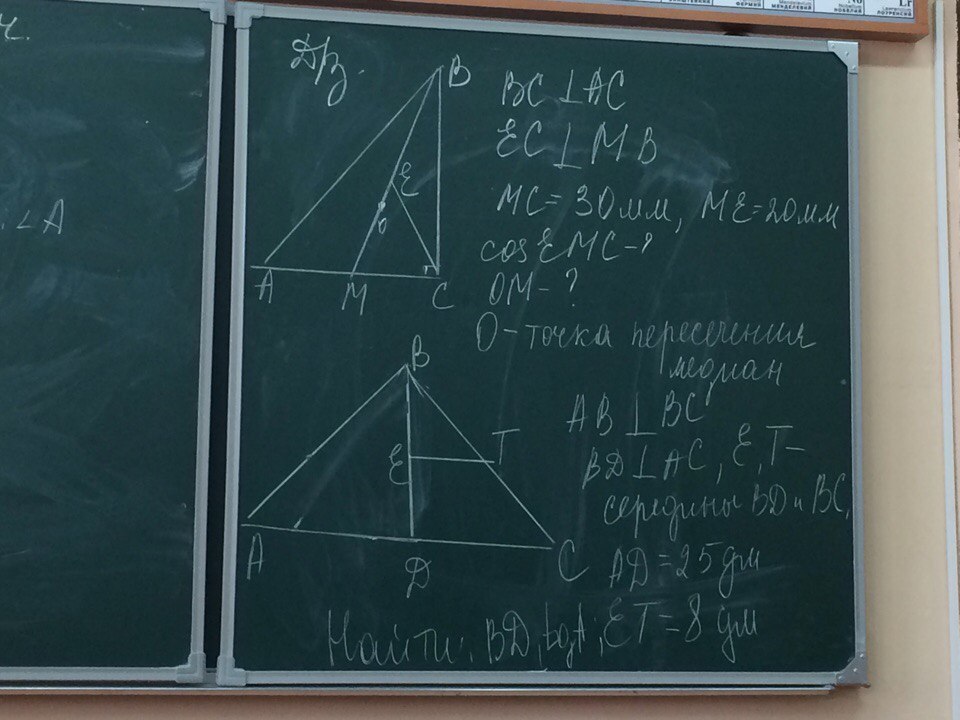 ФЕРМИЙ
МЕНДЕЛЕВИЙ
НОБЕЛИЙ
ЛОУРЕНСИЙ
Lr
∠A
ДЗ.
B
BC ⊥ AC
EC ⊥ MB
E
MC = 30 мм, ME = 20 мм
O
cos EMC - ?
A M C
OM - ?
O - точка пересечения
медиан
B
AB ⊥ BC
E T
BD ⊥ AC, E, T -
середины BD и BC,
A D C
AD = 25 дм
Найти: BD, tgA; ET = 8 дм